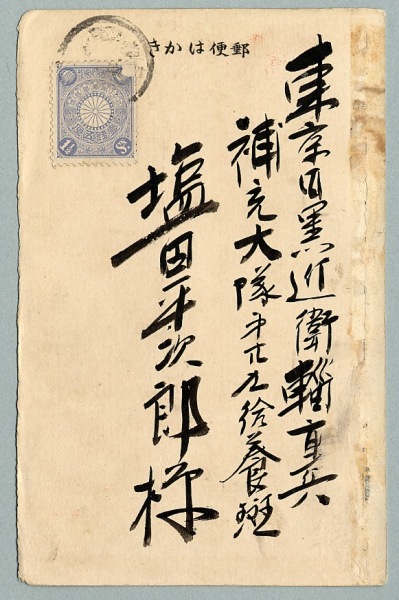 郵便はかき
東京目黒近衛輜重兵
補充大隊 給養班
塩田平次郎様
1½ Sn.